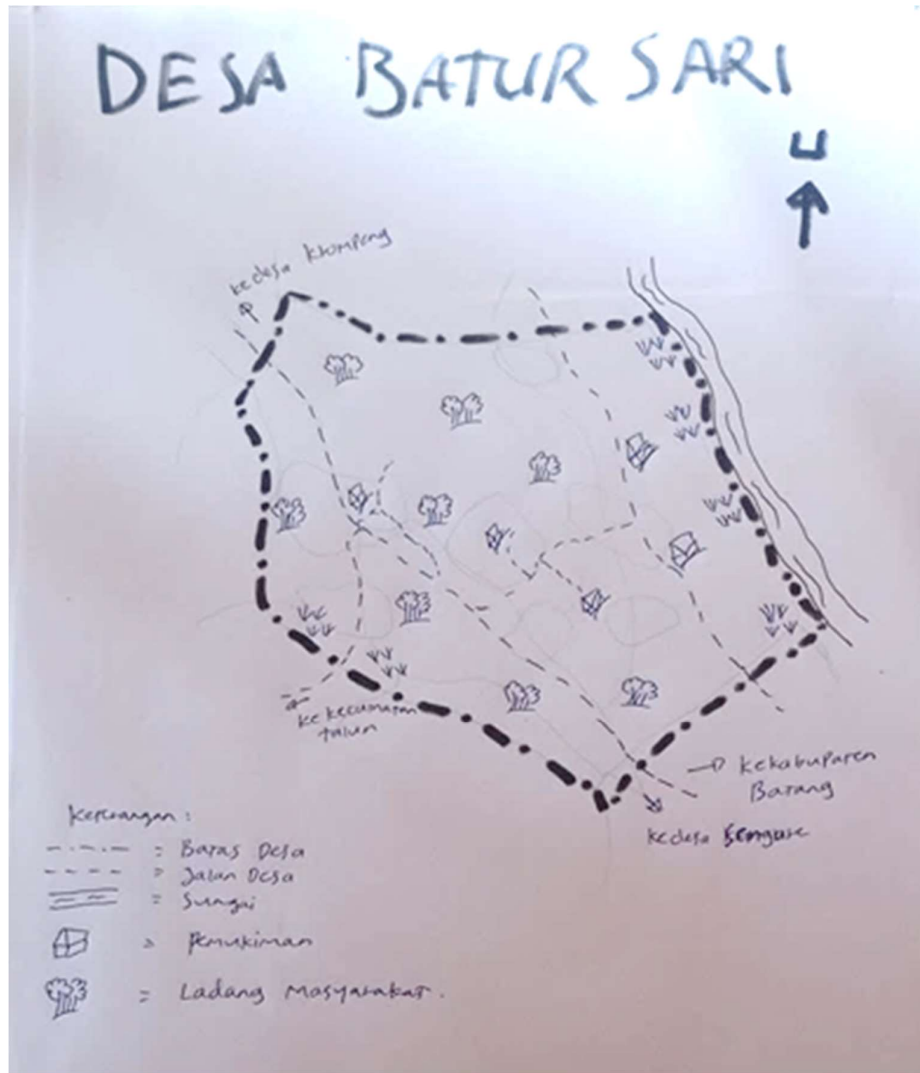 DESA BATUR SARI
U
kedesa Klompeng
ke kecamatan
talun
kekabupaten
Batang
kedesa
Keterangan :
= Batas Desa
= Jalan Desa
= Sungai
= Pemukiman
= Ladang Masyarakat.